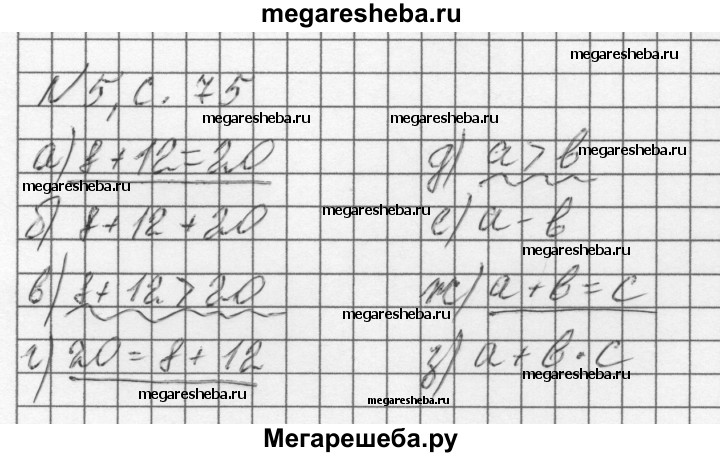 megaresheba.ru
megaresheba.ru
N 5, с. 75
megaresheba.ru megaresheba.ru
а) 8 + 12 = 20 д) a > b megaresheba.ru
megaresheba.ru
б) 8 + 12 + 20 megaresheba.ru е) a - b
megaresheba.ru
в) 8 + 12 > 20 megaresheba.ru ж) a + b = c
megaresheba.ru
г) 20 = 8 + 12 з) a + b · c
megaresheba.ru megaresheba.ru
megaresheba.ru
Мегарешеба.ру